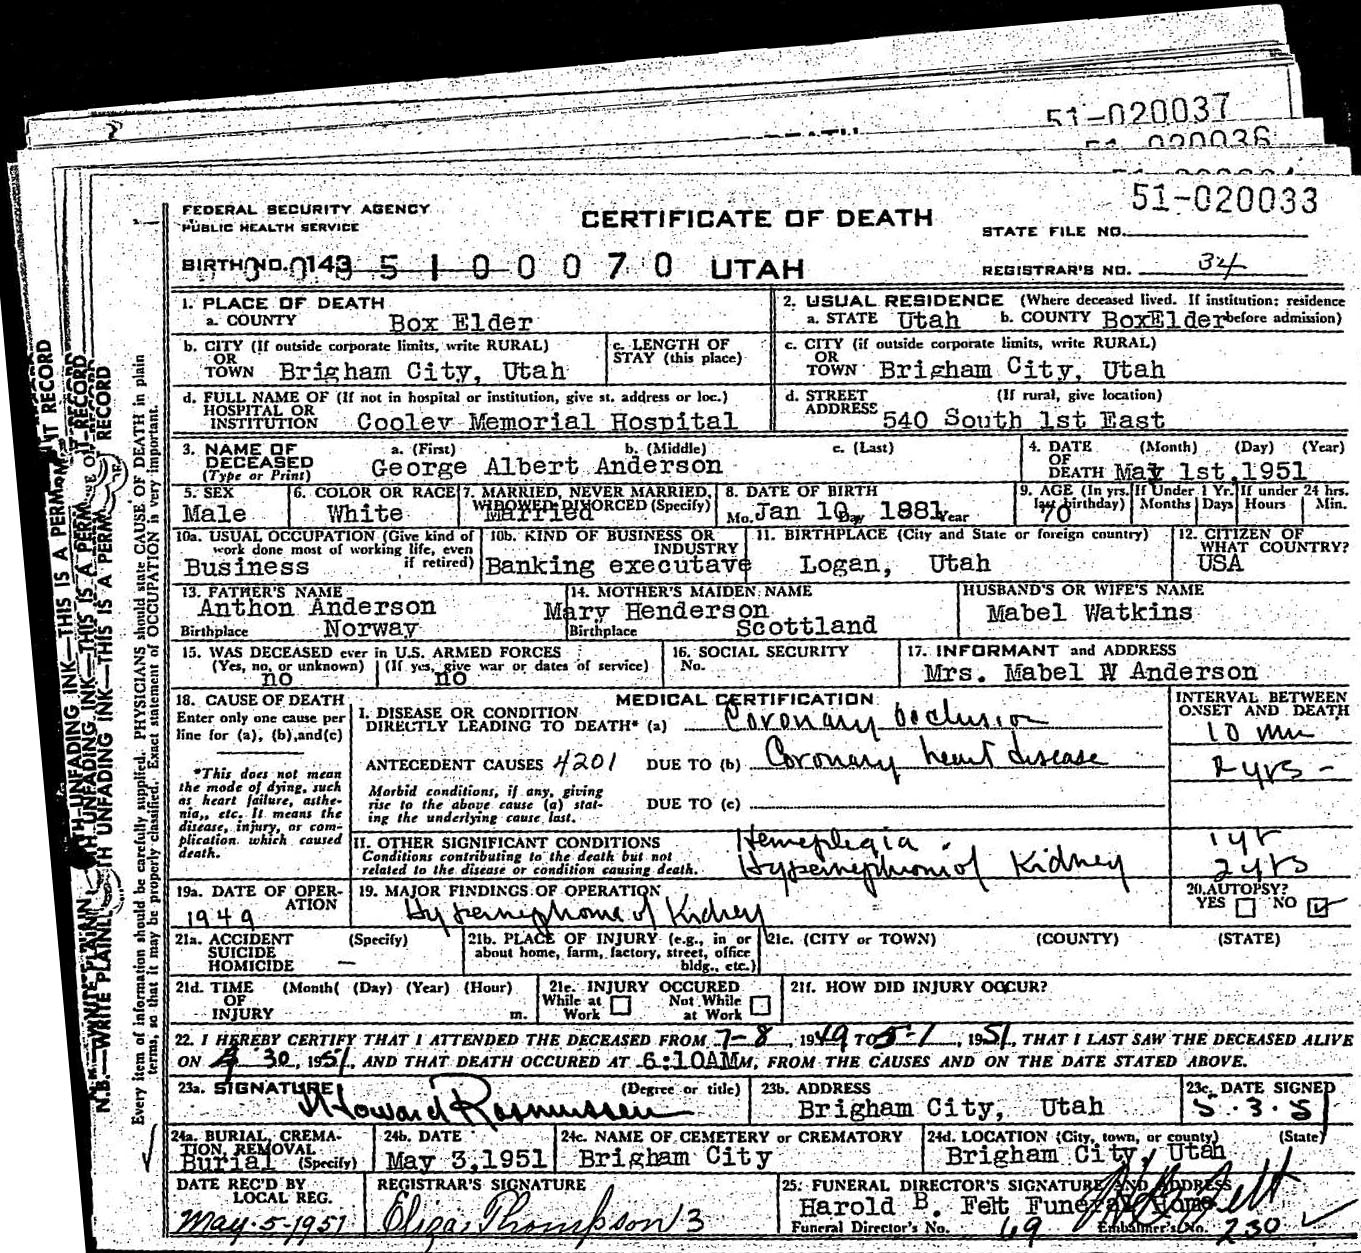 51-020037
51-020036
51-020033
FEDERAL SECURITY AGENCY
PUBLIC HEALTH SERVICE
CERTIFICATE OF DEATH
STATE FILE NO.
BIRTH NO. 0143 5 1 0 0 0 7 0 UTAH
REGISTRAR'S NO. 34
1. PLACE OF DEATH
a. COUNTY Box Elder
2. USUAL RESIDENCE (Where deceased lived. If institution: residence
a. STATE Utah b. COUNTY BoxElder before admission)
b. CITY (If outside corporate limits, write RURAL)
OR
TOWN Brigham City, Utah
c. LENGTH OF
STAY (this place)
c. CITY (if outside corporate limits, write RURAL)
OR
TOWN Brigham City, Utah
d. FULL NAME OF (If not in hospital or institution, give st. address or loc.)
HOSPITAL OR
INSTITUTION Cooley Memorial Hospital
d. STREET (If rural, give location)
ADDRESS 540 South 1st East
3. NAME OF a. (First) b. (Middle) c. (Last)
DECEASED
(Type or Print) George Albert Anderson
4. DATE (Month) (Day) (Year)
OF
DEATH May 1st, 1951
5. SEX
Male
6. COLOR OR RACE
White
7. MARRIED, NEVER MARRIED,
WIDOWED DIVORCED (Specify)
Married
8. DATE OF BIRTH
Mo. Jan 10, Day 1881 Year
9. AGE (In yrs.
last birthday)
70
If Under 1 Yr.
Months Days
If under 24 hrs.
Hours Min.
10a. USUAL OCCUPATION (Give kind of
work done most of working life, even
if retired)
Business
10b. KIND OF BUSINESS OR
INDUSTRY
Banking executave
11. BIRTHPLACE (City and State or foreign country)
Logan, Utah
12. CITIZEN OF
WHAT COUNTRY?
USA
13. FATHER'S NAME
Anthon Anderson
Birthplace Norway
14. MOTHER'S MAIDEN NAME
Mary Henderson
Birthplace Scottland
HUSBAND'S OR WIFE'S NAME
Mabel Watkins
15. WAS DECEASED ever in U.S. ARMED FORCES
(Yes, no, or unknown) (If yes, give war or dates of service)
no no
16. SOCIAL SECURITY
No.
17. INFORMANT and ADDRESS
Mrs. Mabel W Anderson
18. CAUSE OF DEATH
Enter only one cause per
line for (a), (b), and (c)
*This does not mean
the mode of dying, such
as heart failure, asthe-
nia,, etc. It means the
disease, injury, or com-
plication which caused
death.
MEDICAL CERTIFICATION
INTERVAL BETWEEN
ONSET AND DEATH
I. DISEASE OR CONDITION
DIRECTLY LEADING TO DEATH* (a) Coronary occlusion 10 mn
ANTECEDENT CAUSES 4201 DUE TO (b) Coronary heart disease 2 yrs -
Morbid conditions, if any, giving
rise to the above cause (a) stat-
ing the underlying cause last.
DUE TO (c)
II. OTHER SIGNIFICANT CONDITIONS
Conditions contributing to the death but not
related to the disease or condition causing death.
Hemeplegia 1 yr
Hypernephroma of Kidney 2 yrs
19a. DATE OF OPER-
ATION
1949
19. MAJOR FINDINGS OF OPERATION
Hypernephroma of Kidney
20. AUTOPSY?
YES NO
21a. ACCIDENT (Specify)
SUICIDE
HOMICIDE —
21b. PLACE OF INJURY (e.g., in or
about home, farm, factory, street, office
bldg., etc.)
21c. (CITY or TOWN) (COUNTY) (STATE)
21d. TIME (Month( (Day) (Year) (Hour)
OF
INJURY m.
21e. INJURY OCCURED
While at Not While
Work at Work
21f. HOW DID INJURY OCCUR?
22. I HEREBY CERTIFY THAT I ATTENDED THE DECEASED FROM 7-8, 1949 TO 5-1, 1951, THAT I LAST SAW THE DECEASED ALIVE
ON 4 30, 1951, AND THAT DEATH OCCURED AT 6:10AM M, FROM THE CAUSES AND ON THE DATE STATED ABOVE.
23a. SIGNATURE (Degree or title)
Howard Rasmussen
23b. ADDRESS
Brigham City, Utah
23c. DATE SIGNED
5.3.51
24a. BURIAL, CREMA-
TION, REMOVAL
Burial (Specify)
24b. DATE
May 3,1951
24c. NAME OF CEMETERY or CREMATORY
Brigham City
24d. LOCATION (City, town, or county) (State)
Brigham City, Utah
DATE REC'D BY
LOCAL REG.
May-5-1951
REGISTRAR'S SIGNATURE
Eliza Thompson 3
25. FUNERAL DIRECTOR'S SIGNATURE AND ADDRESS
Harold B. Felt Funeral Home
Funeral Director's No. 69 Embalmer's No. 230
N.B.—WRITE PLAINLY WITH UNFADING INK—THIS IS A PERMANENT RECORD
Every item of information should be carefully supplied. PHYSICIANS should state CAUSE OF DEATH in plain
terms, so that it may be properly classified. Exact statement of OCCUPATION is very important.